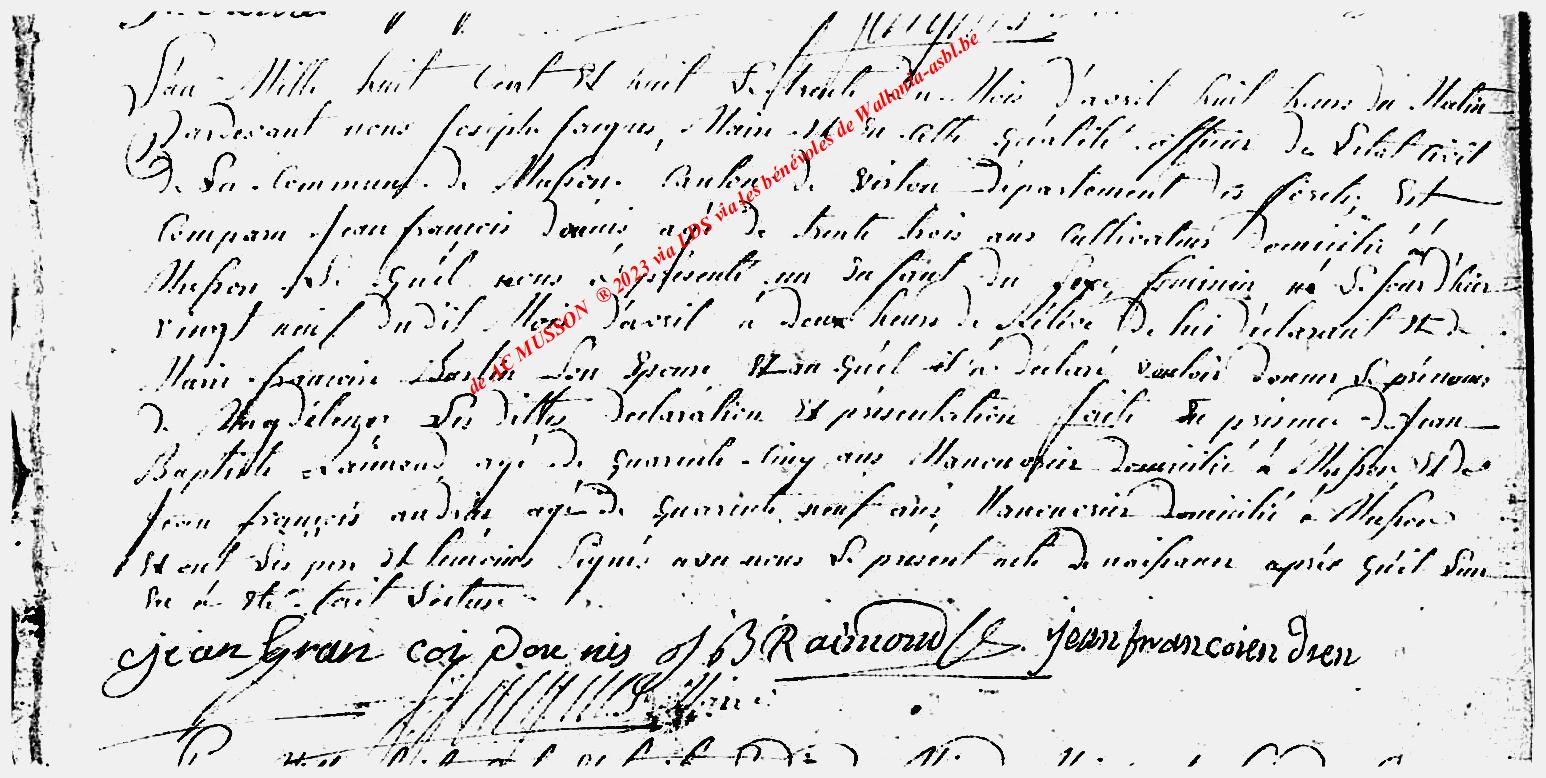 L'an Mille huit Cent Et huit Le trente du Mois d'avril huit heures du Matin
Pardevant nous Joseph Jacques, Maire Et En Cette qualité officier de L'état Civil
de La Commune de Musson Canton de Virton département des forets, Est
Comparu Jean françois domis agé de trente trois ans Cultivateur domicilié à
Musson Le quél nous à présenté un Enfant du Sexe feminin né Le jour d'hier
vingt neuf dudit Mois d'avril à deux heures de Rélévé de lui déclarant Et de
Marie françoise Son Epouse Et au quél il à déclaré vouloir donner Le prénoms
de Magdéleine Les dittes declaration Et présentation faite En présence de Jean
Baptiste Raimond agé de quarente Cinq ans Manouvrier domicilié à Musson Et de
Jean françois andrin agé de quarente neuf ans, Manouvrier domicilié à Musson
Et ont Les pere Et temoins Signés avec nous Le présent acte de naissance après quél Leur
En à Eté fait Lecture
jean fran coi Dou nis J B Raimond jean francoien drien
Maire
de AC MUSSON ® 2023 via LDS via les bénévoles de Wallonia-asbl.be